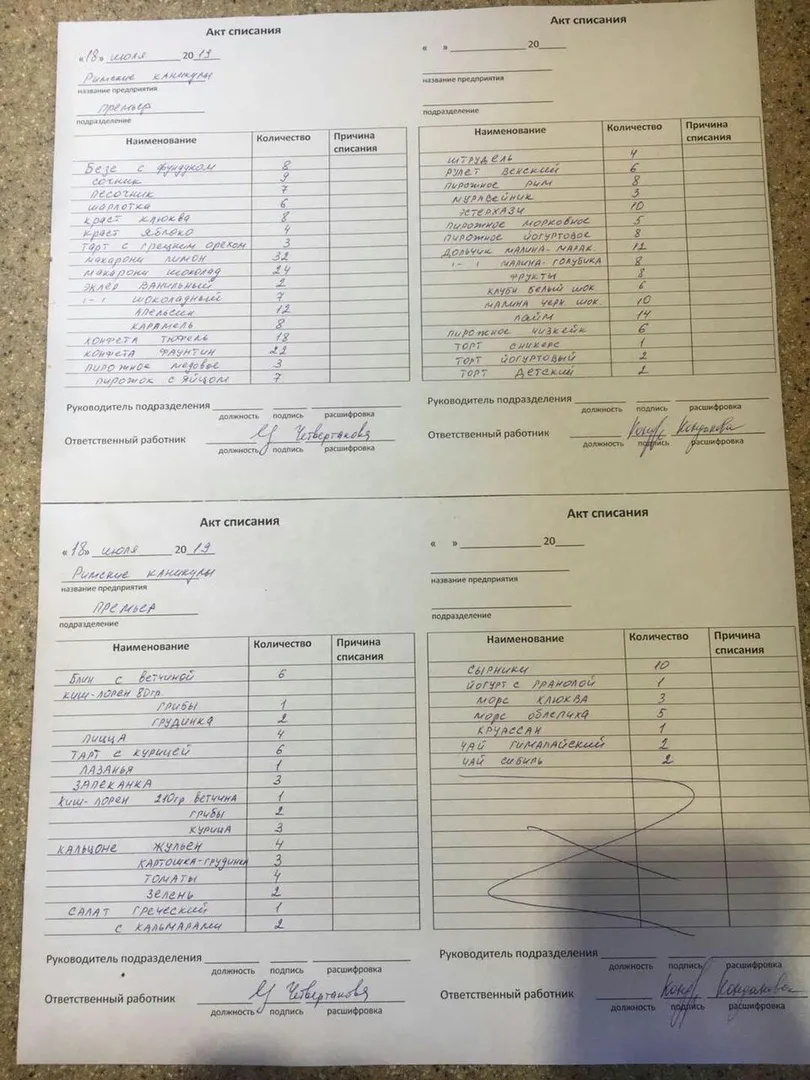 Акт списания
«18» июля 2019
Римские каникулы
название предприятия
Премьер
подразделение
Наименование Количество Причина списания
Безе с фундуком 8
сочник 9
песочник 7
шарлотка 6
краст клюква 8
краст яблоко 4
тарт с грецким орехом 3
макарони лимон 32
макарони шоколад 24
эклер ванильный 2
1-1 шоколадный 7
апельсин 12
карамель 8
конфета трюфель 18
конфета фаунтин 22
пирожное медовое 3
пирожок с яйцом 7
Руководитель подразделения
должность подпись расшифровка
Ответственный работник Четвертакова
должность подпись расшифровка
Акт списания
« » 20
название предприятия
подразделение
Наименование Количество Причина списания
штрудель 4
рулет венский 6
пирожное Рим 8
муравейник 3
эстерхази 10
пирожное морковное 5
пирожное йогуртовое 8
дольчик малина-марак. 12
1-1 малина-голубика 8
фрукты 8
клубн белый шок. 6
малина черн. шок. 10
лайм 14
пирожное чизкейк 6
торт сникерс 1
торт йогуртовый 2
торт детский 2
Руководитель подразделения
должность подпись расшифровка
Ответственный работник
должность подпись расшифровка
Акт списания
«18» июля 2019
Римские каникулы
название предприятия
Премьер
подразделение
Наименование Количество Причина списания
Блин с ветчиной 6
киш-лорен 80гр
грибы 1
грудинка 2
пицца 4
тарт с курицей 6
лазанья 1
запеканка 3
киш-лорен 210гр ветчина 1
грибы 2
курица 3
кальцоне жульен 4
картошка-грудинка 3
томаты 4
зелень 2
салат греческий 1
с кальмарами 2
Руководитель подразделения
должность подпись расшифровка
Ответственный работник Четвертакова
должность подпись расшифровка
Акт списания
« » 20
название предприятия
подразделение
Наименование Количество Причина списания
сырники 10
йогурт с гранолой 1
морс клюква 3
морс облепиха 5
круассан 1
чай гималайский 2
чай сибирь 2
Руководитель подразделения
должность подпись расшифровка
Ответственный работник
должность подпись расшифровка